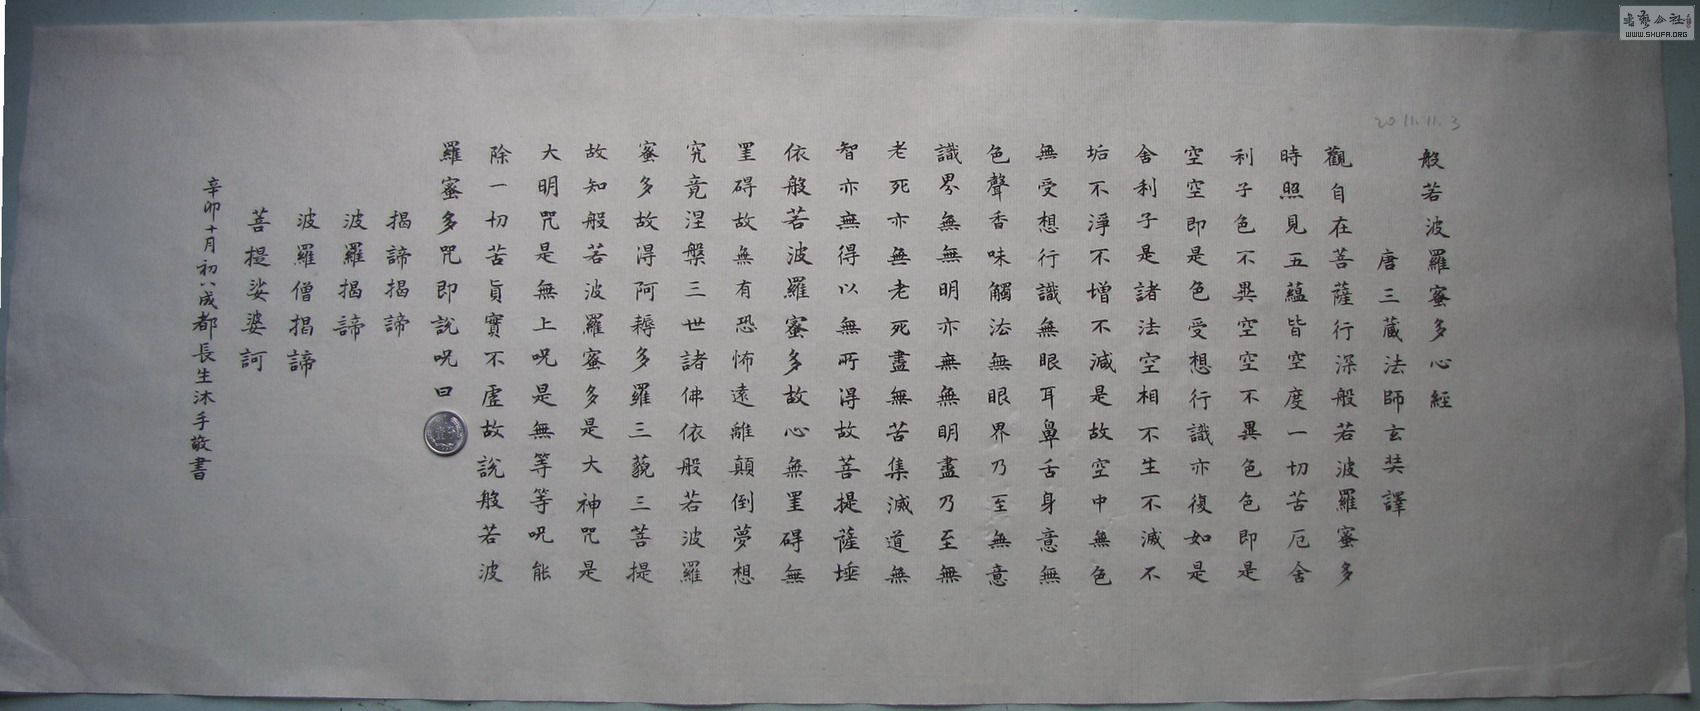 般若波羅蜜多心經
唐三藏法師玄奘譯
觀自在菩薩行深般若波羅蜜多
時照見五蘊皆空度一切苦厄舍
利子色不異空空不異色色即是
空空即是色受想行識亦復如是
舍利子是諸法空相不生不滅不
垢不淨不增不減是故空中無色
無受想行識無眼耳鼻舌身意無
色聲香味觸法無眼界乃至無意
識界無無明亦無無明盡乃至無
老死亦無老死盡無苦集滅道無
智亦無得以無所得故菩提薩埵
依般若波羅蜜多故心無罣碍無
罣碍故無有恐怖遠離顛倒夢想
究竟涅槃三世諸佛依般若波羅
蜜多故得阿耨多羅三藐三菩提
故知般若波羅蜜多是大神咒是
大明咒是無上呪是無等等呪能
除一切苦眞實不虛故說般若波
羅蜜多咒即說呪曰
揭諦揭諦
波羅揭諦
波羅僧揭諦
菩提娑婆訶
辛卯十月初八成都長生沐手敬書
2011.11.3
书艺公社
WWW.SHUFA.ORG